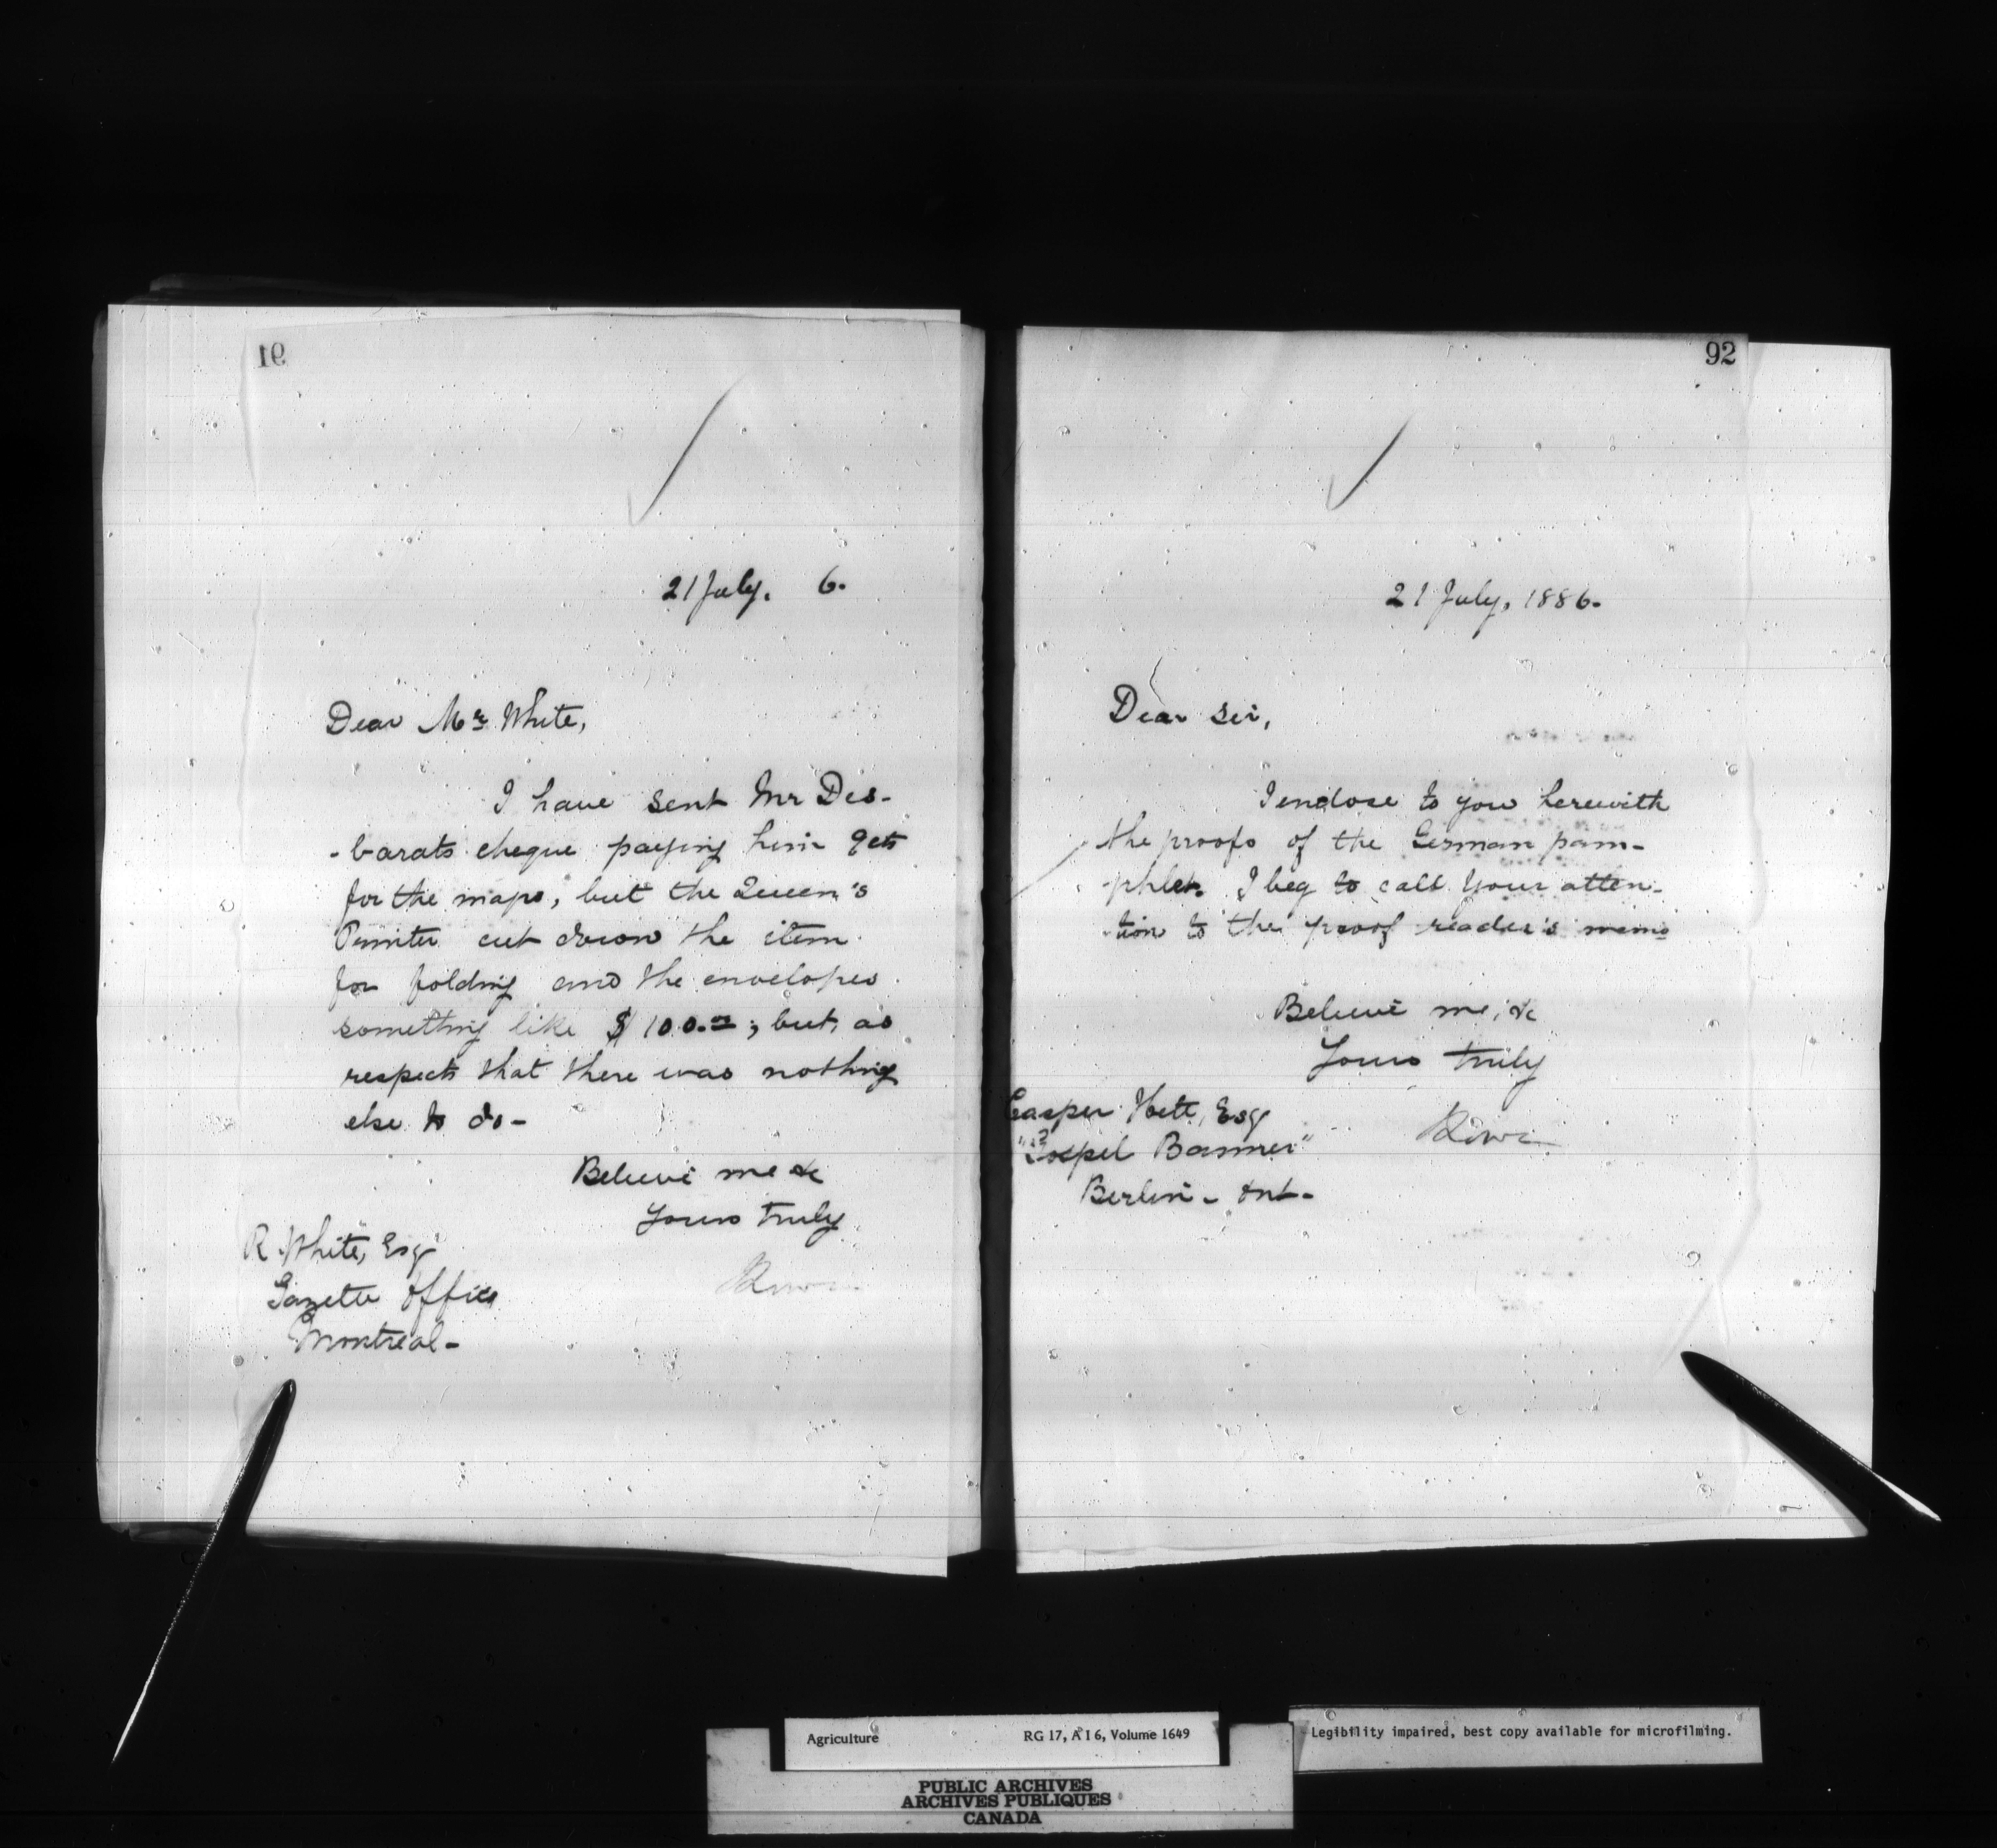 91
21 July. 6.
Dear Mr. White,
I have sent Mr Des-
-barats cheque paying him 9cts
for the maps, but the Queen's
Printer cut down the item
for folding and the envelopes
something like $100.00; but, as
respects that there was nothing
else to do-
Believe me &c
Yours truly
R. White, Esq
Gazette Office
Montreal-
92
21 July, 1886.
Dear Sir,
I enclose to you herewith
the proofs of the German pam-
-phlet. I beg to call your atten-
-tion to the proof reader's memo
Believe me, &c
Yours truly
Casper Hett, Esq
"Gospel Banner"
Berlin - Ont-
Agriculture RG 17, A I 6, Volume 1649
Legibility impaired, best copy available for microfilming.
PUBLIC ARCHIVES
ARCHIVES PUBLIQUES
CANADA